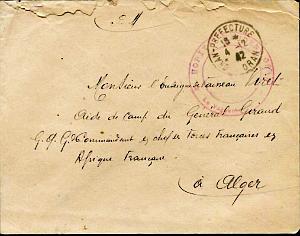 F.M
ORAN-PREFECTURE
ORAN
Monsieur l'Enseigne de Vaisseau
Aide de Camp du Général Giraud
Commandant en chef les Forces Françaises en
Afrique Française
à Alger